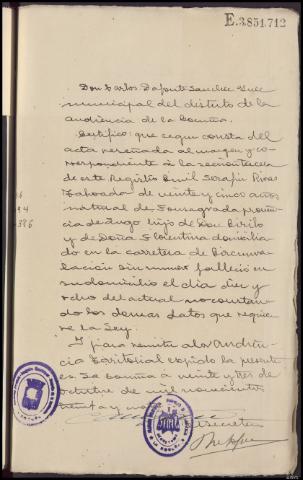 E.3851.712
Don Carlos Dafonte Sanchez Juez
municipal del distrito de la
audiencia de la Coruña.
Certifico: que segun consta del
acta reseñada al margen y co-
rrespondiente a la seccion tercera
de este Registro Civil Serafin Rivas
Taboada de veinte y cinco años
natural de Fonsagrada provin-
cia de Lugo hijo de Don Cirilo
y de Doña Florentina domicilia-
do en la carretera de Circunva-
lación sin numero falleció en
su domicilio el dia diez y
ocho del actual no constan-
do los demas datos que requie-
re la Ley.
Y para remitir a la Audien-
cia Territorial expido la presente
en La Coruña a veinte y tres de
octubre de mil novecientos
treinta y
El secretario